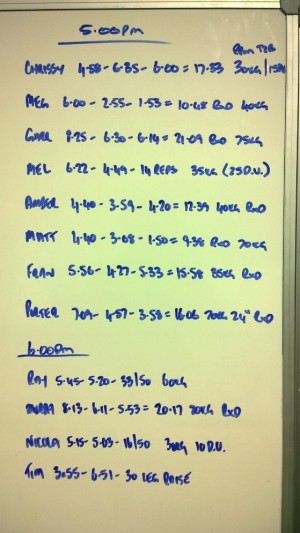 5.00pm
CHRISSY 4.58 - 6.35 - 6.00 = 17.33 30KG
MEG 6.00 - 2.55 - 1.53 = 10.48 RxD 40KG
8.25 - 6.30 - 6.14 = 21.09 RxD 75KG
MEL 6.22 - 4.49 - 14 REPS 35KG (25 D.U.)
AMBER 4.40 - 3.59 - 4.20 = 12.39 40KG RxD
MATT 4.40 - 3.08 - 1.50 = 9.38 RxD 70KG
FRAN 5.56 - 4.27 - 5.33 = 15.58 35KG RxD
PORTER 7.09 - 4.57 - 3.58 = 16.06 70KG 24" RxD
6.00pm
RAY 5.45 - 5.20 - 33/50 60KG
8.13 - 6.11 - 5.53 = 20.17 70KG RxD
NICOLA 5.15 - 5.03 - 16/50 30KG 10 D.U.
TIM 3.55 - 6.51 - 30 LEG RAISE